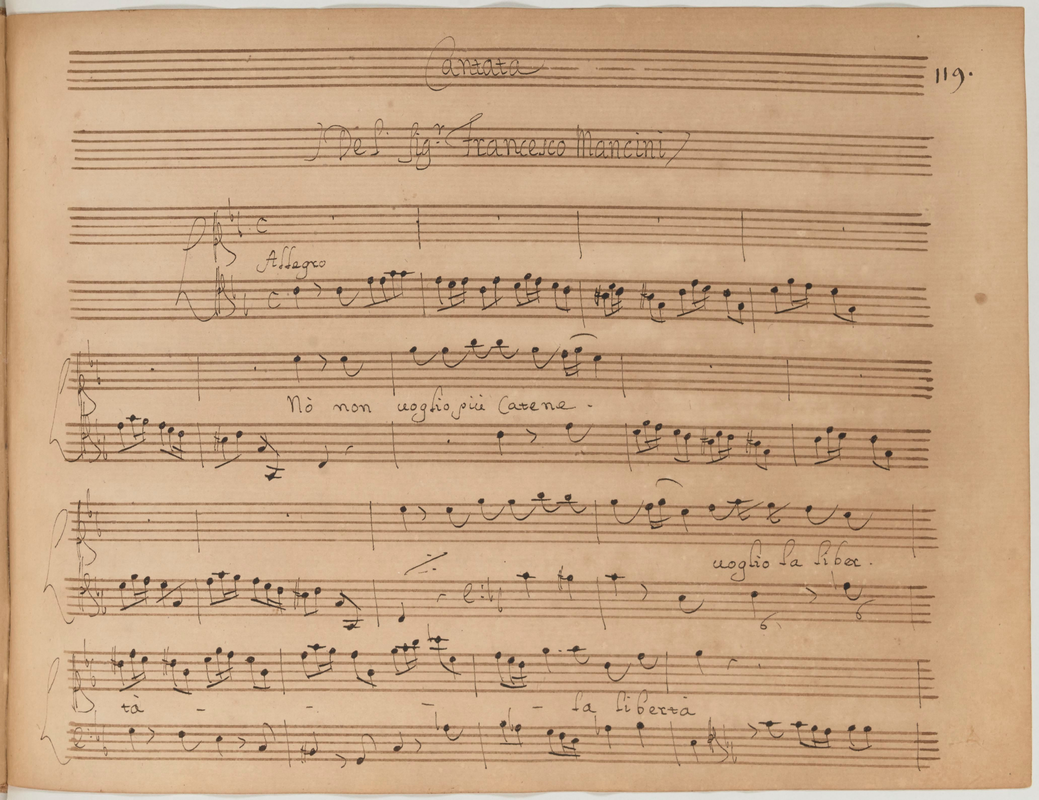 Cantata
119.
Del Sig.r Francesco Mancini
Allegro
Nò non uoglio più Catene -
uoglio la liber -
6 6
tà - - - - la libertà